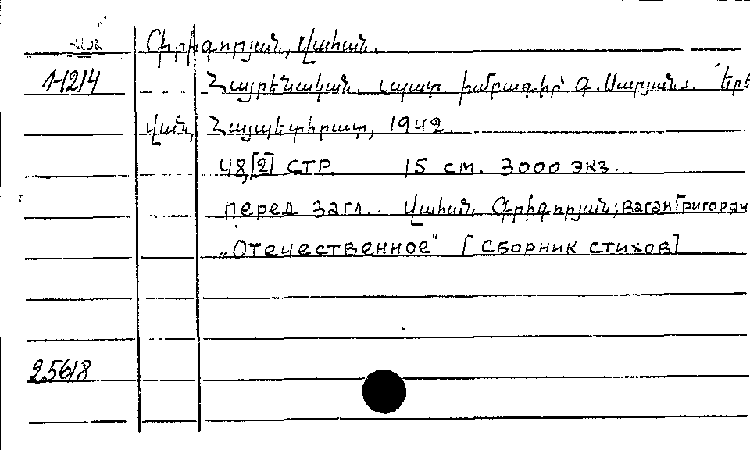 Գրիգորյան, Վահան.
1-1214
Հայրենական. պատ. խմբագիր՝ Գ. Սարյան. Երե
վան, Հայպետհրատ, 1942.
48, [2] стр. 15 см. 3000 экз.
перед загл.. Վահան Գրիգորյան; ваган Григорян
„Отечественное" [сборник стихов]
25618